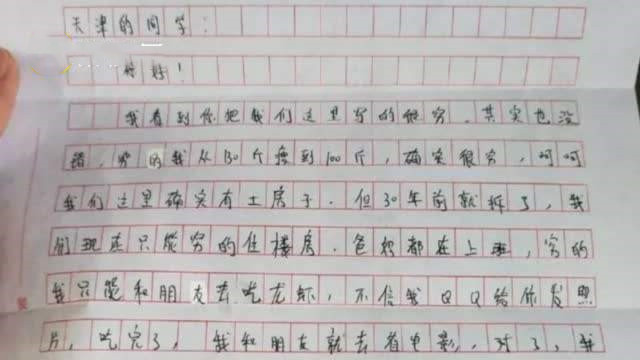 天津的同学:
你好!
我看到你把我们这里写的很穷，其实也没
错，穷的我从130斤瘦到100斤，确实很穷，呵呵
我们这里确实有土房子.但30年前就拆了，我
们现在只能穷的住楼房.爸妈都在上班，穷的
我只能和朋友去吃龙虾，不信我QQ给你发照
片，吃完了，我和朋友就去看电影，对了，我